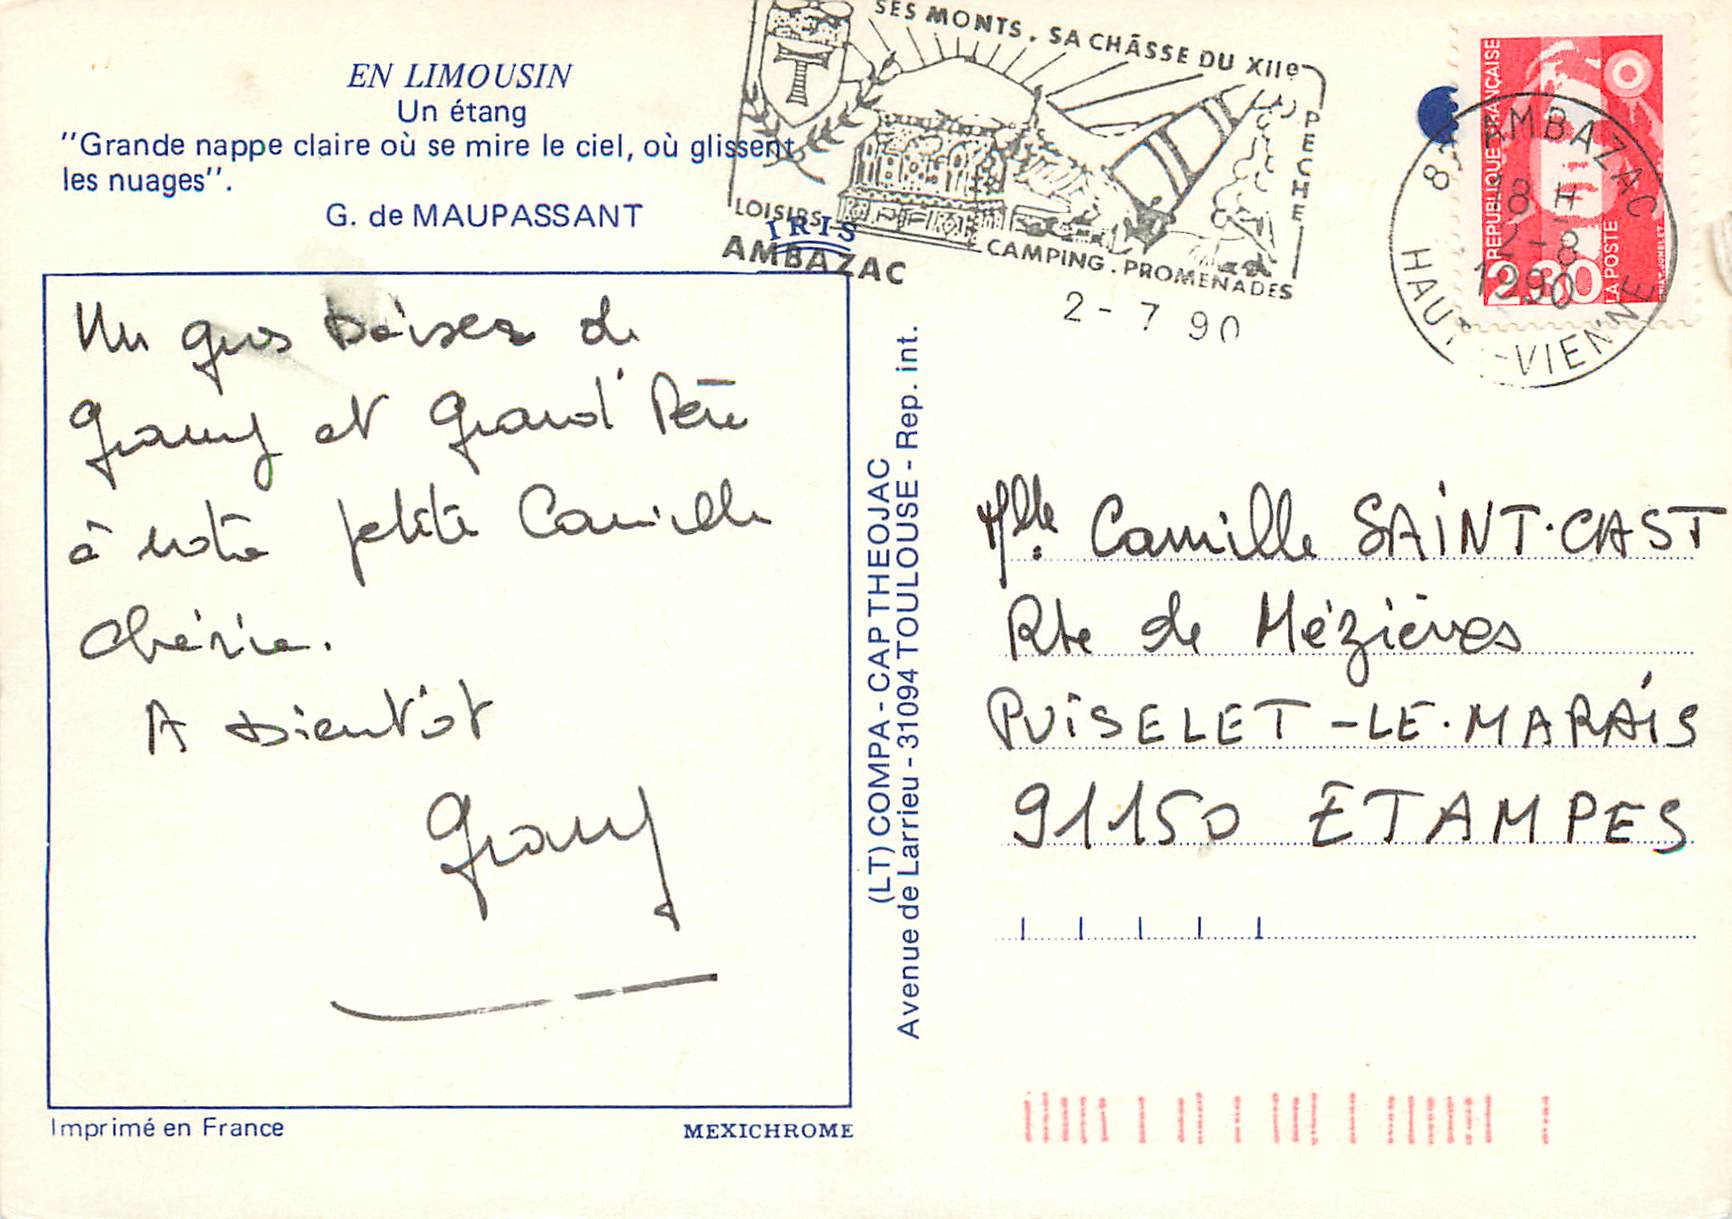 EN LIMOUSIN
Un étang
"Grande nappe claire où se mire le ciel, où glissent
les nuages".
G. de MAUPASSANT
SES MONTS. SA CHÂSSE DU XIIe
PECHE
LOISIRS
CAMPING. PROMENADES
IRIS
AMBAZAC
2-7 90
RÉPUBLIQUE FRANÇAISE
2,30
LA POSTE
AMBAZAC
18 H
2-8
1990
HAUTE-VIENNE
Un gros baiser de
Gramy et Grand'Père
à notre petite Camille
chérie.
A bientôt
Gramy
(LT) COMPA - CAP THEOJAC
Avenue de Larrieu - 31094 TOULOUSE - Rep. int.
Mlle Camille SAINT-CAST
Rte de Mézières
PUISELET-LE-MARAIS
91150 ETAMPES
Imprimé en France
MEXICHROME